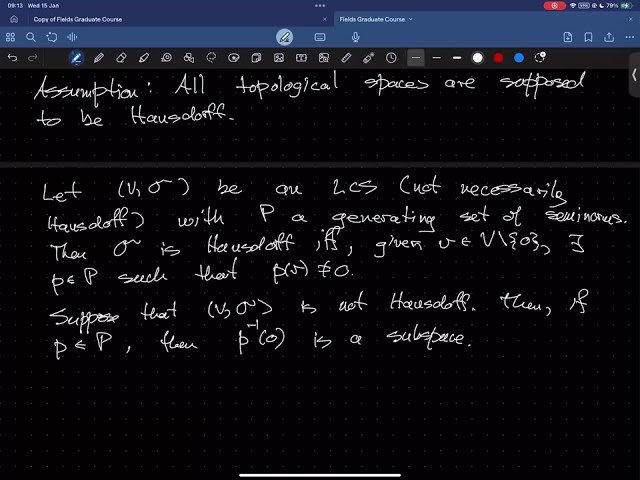 09:13 Wed 15 Jan
79%
Copy of Fields Graduate Course
Fields Graduate Course
Assumption: All topological spaces are supposed
to be Hausdorff.
Let (V, σ) be an LCS (not necessarily
Hausdorff) with P a generating set of seminorms.
Then σ is Hausdorff iff, given v ∈ V\{0}, ∃
p ∈ P such that p(v) ≠ 0.
Suppose that (V, σ) is not Hausdorff. Then, if
p ∈ P, then p⁻¹(0) is a subspace.